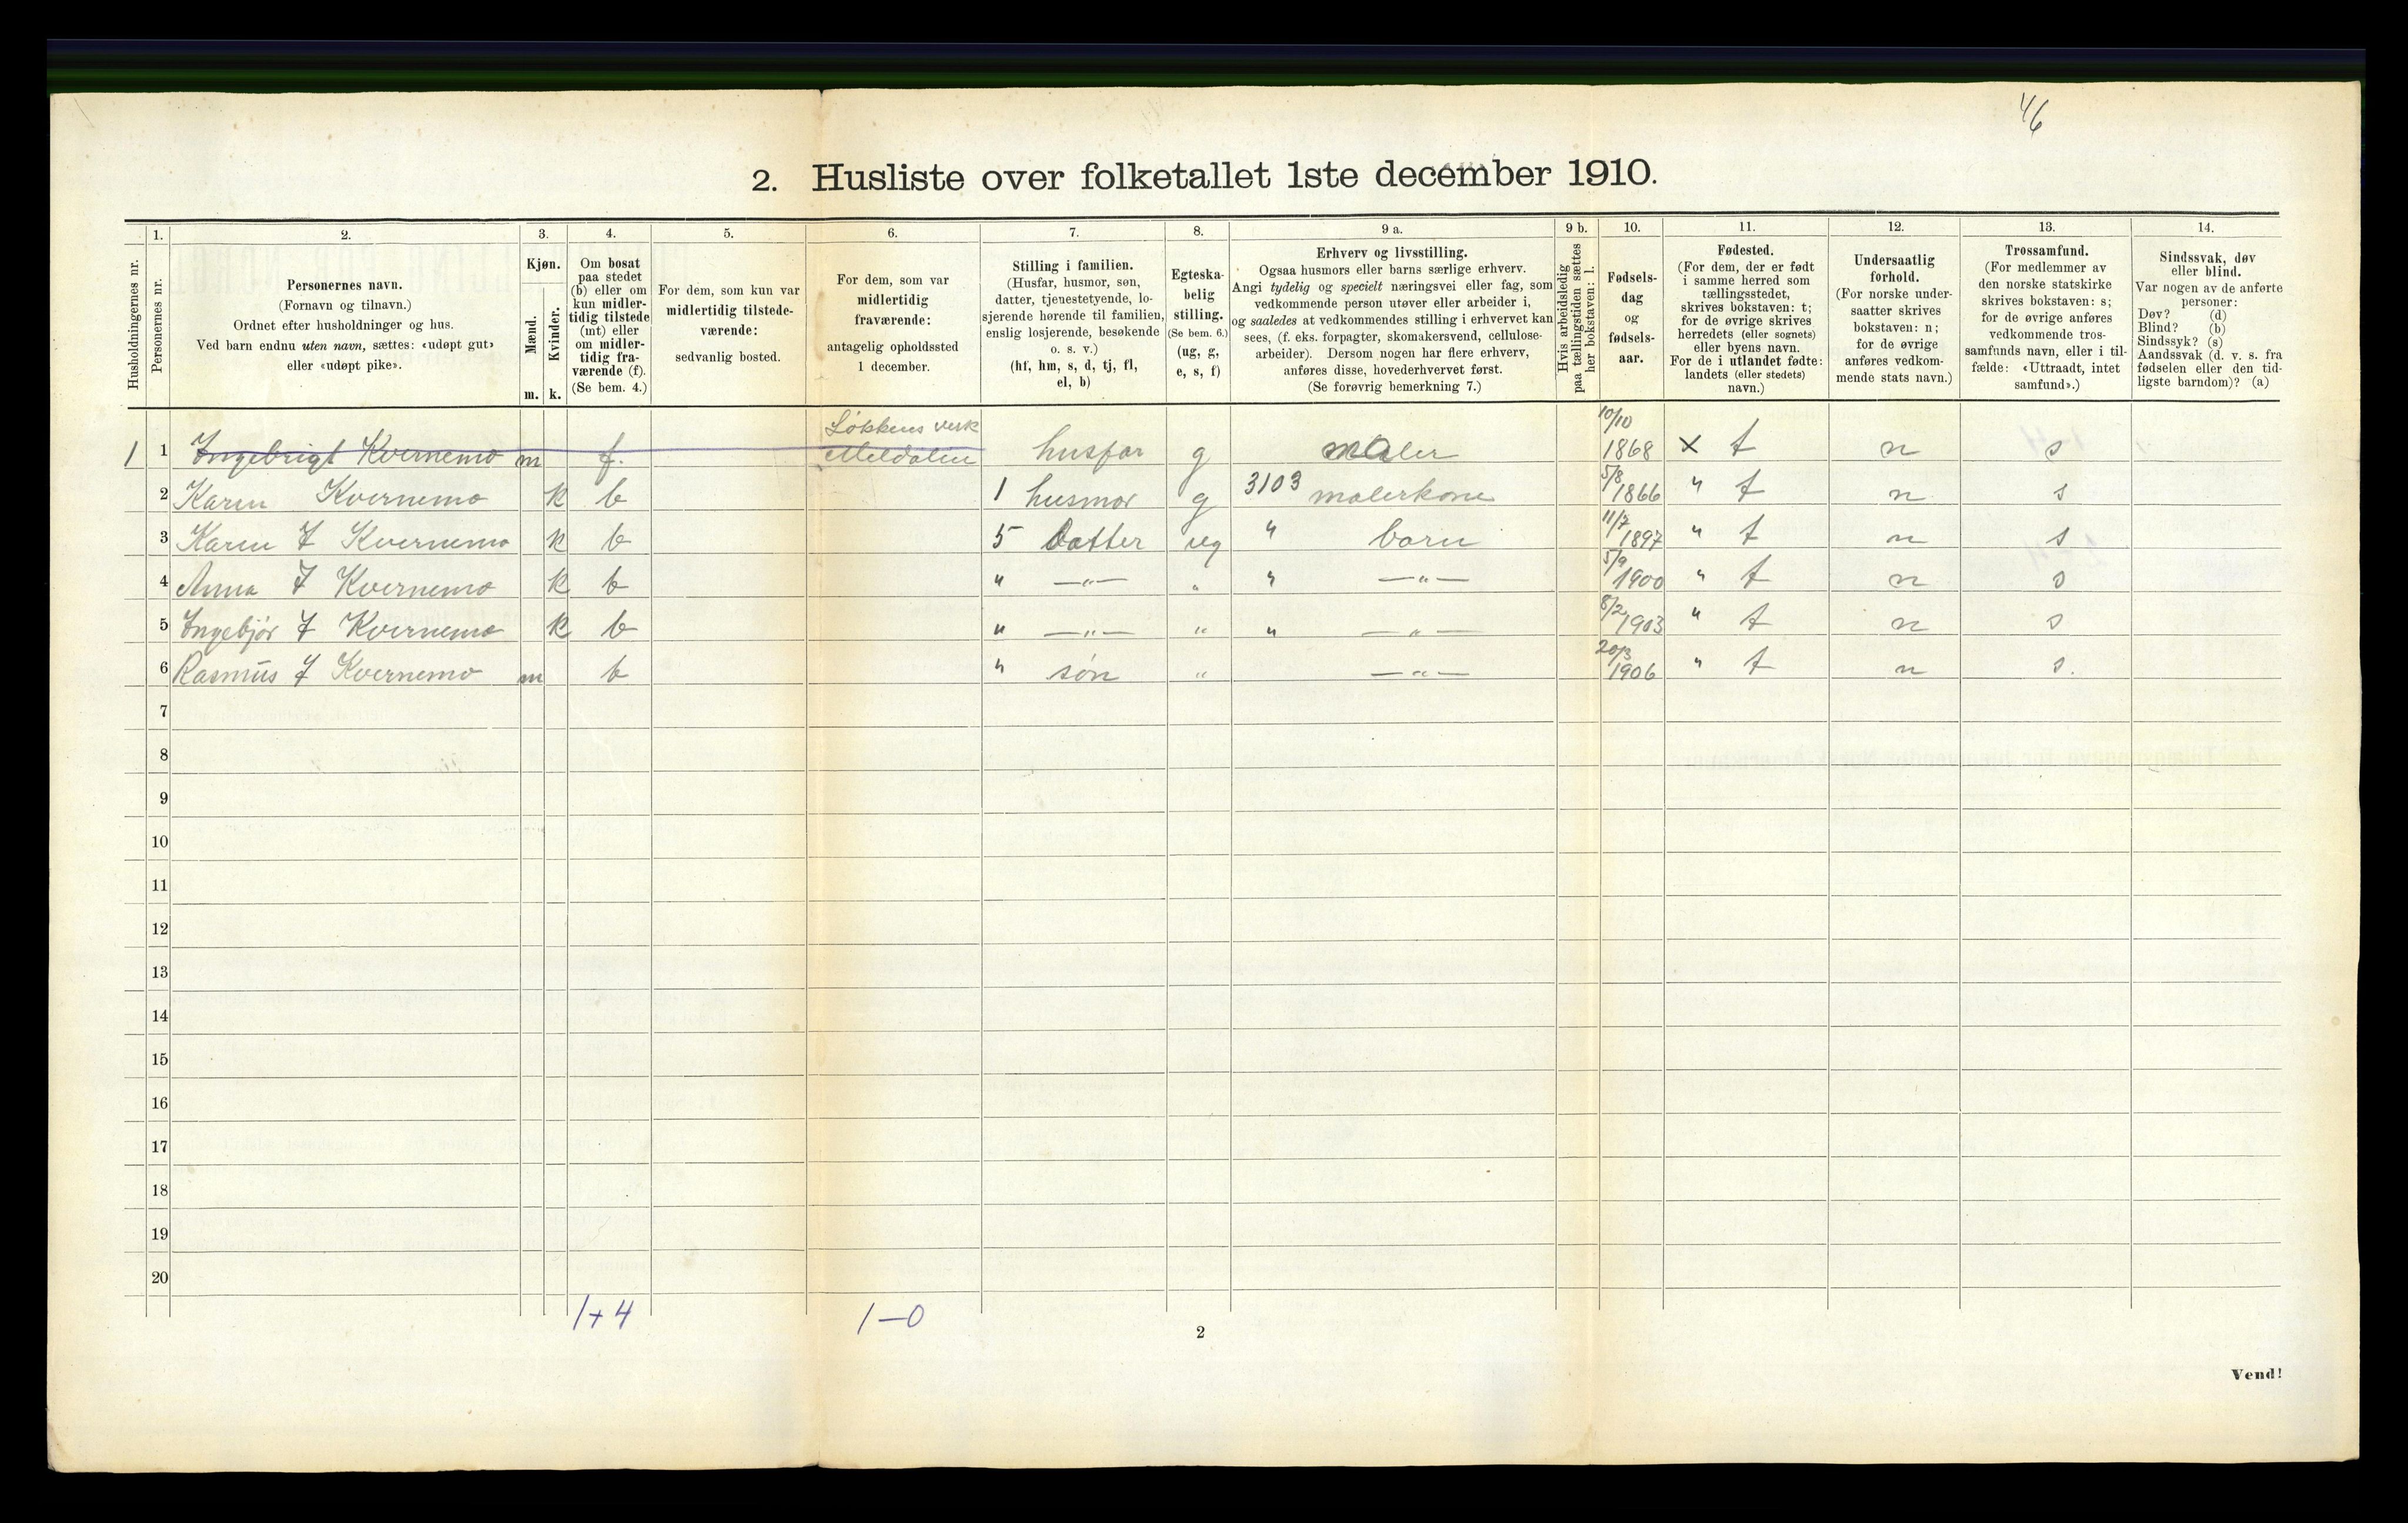 46
2. Husliste over folketallet 1ste december 1910.
Husholdningernes nr.
1.
Personernes nr.
2.
Personernes navn.
(Fornavn og tilnavn.)
Ordnet efter husholdninger og hus.
Ved barn endnu uten navn, sættes: «udøpt gut»
eller «udøpt pike».
3.
Kjøn.
Mænd.
Kvinder.
m. k.
4.
Om bosat
paa stedet
(b) eller om
kun midler-
tidig tilstede
(mt) eller
om midler-
tidig fra-
værende (f).
(Se bem. 4.)
5.
For dem, som kun var
midlertidig tilstede-
værende:
sedvanlig bosted.
6.
For dem, som var
midlertidig
fraværende:
antagelig opholdssted
1 december.
7.
Stilling i familien.
(Husfar, husmor, søn,
datter, tjenestetyende, lo-
sjerende hørende til familien,
enslig losjerende, besøkende
o. s. v.)
(hf, hm, s, d, tj, fl,
el, b)
8.
Egteska-
belig
stilling.
(Se bem. 6.)
(ug, g,
e, s, f)
9 a.
Erhverv og livsstilling.
Ogsaa husmors eller barns særlige erhverv.
Angi tydelig og specielt næringsvei eller fag, som
vedkommende person utøver eller arbeider i,
og saaledes at vedkommendes stilling i erhvervet kan
sees, (f. eks. forpagter, skomakersvend, cellulose-
arbeider). Dersom nogen har flere erhverv,
anføres disse, hovederhvervet først.
(Se forøvrig bemerkning 7.)
9 b.
Hvis arbeidsledig
paa tællingstiden sættes
her bokstaven: l.
10.
Fødsels-
dag
og
fødsels-
aar.
11.
Fødested.
(For dem, der er født
i samme herred som
tællingsstedet,
skrives bokstaven: t;
for de øvrige skrives
herredets (eller sognets)
eller byens navn.
For de i utlandet fødte:
landets (eller stedets)
navn.)
12.
Undersaatlig
forhold.
(For norske under-
saatter skrives
bokstaven: n;
for de øvrige
anføres vedkom-
mende stats navn.)
13.
Trossamfund.
(For medlemmer av
den norske statskirke
skrives bokstaven: s;
for de øvrige anføres
vedkommende tros-
samfunds navn, eller i til-
fælde: «Uttraadt, intet
samfund».)
14.
Sindssvak, døv
eller blind.
Var nogen av de anførte
personer:
Døv? (d)
Blind? (b)
Sindssyk? (s)
Aandssvak (d. v. s. fra
fødselen eller den tid-
ligste barndom)? (a)
1 1 Ingebrigt Kvernemo m f. Løkkens verk Meldalen husfar g maler 10/10 1868 x t n s
2 Karen Kvernemo k b 1 husmor g 3103 malerkone 5/8 1866 " t n s
3 Karen I Kvernemo k b 5 Datter ug " barn 11/7 1897 " t n s
4 Anna I Kvernemo k b " —"— " " —"— 5/9 1900 " t n s
5 Ingebjør I Kvernemo k b " —"— " " —"— 8/2 1903 " t n s
6 Rasmus I Kvernemo m b " søn " —"— 20/3 1906 " t n s.
7
8
9
10
11
12
13
14
15
16
17
18
19
20
1+4 1—0
2
Vend!